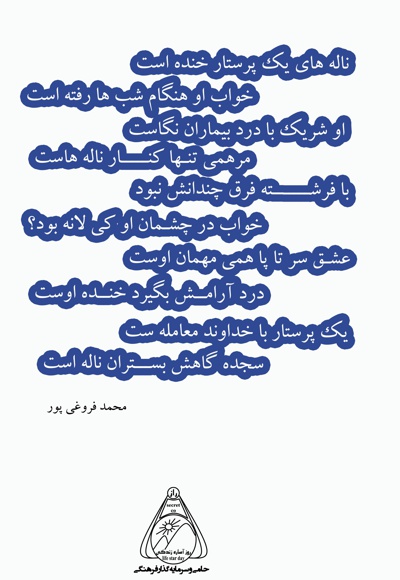 ناله های یک پرستار خنده است
خواب او هنگام شب ها رفته است
او شریک با درد بیماران نگاست
مرهمی تنها کنار ناله هاست
با فرشته فرق چندانش نبود
خواب در چشمان او کی لانه بود؟
عشق سر تا پا همی مهمان اوست
درد آرامش بگیرد خنده اوست
یک پرستار با خداوند معامله ست
سجده گاهش بستران ناله است
محمد فروغی پور
راز
secret
co
روز ستاره زندگی
life star day
حامی و سرمایه گذار فرهنگی